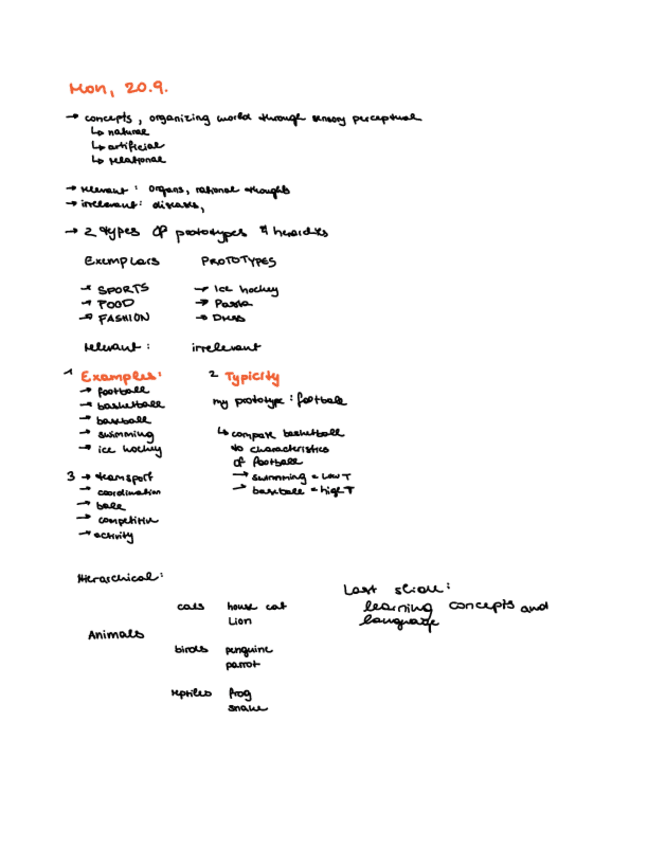 Mon, 20.9.
→ concepts, organizing world through sensory perceptual
↳ natural
↳ artificial
↳ relational
→ relevant : organs, rational thoughts
→ irrelevant: diseases,
→ 2 types of prototypes &
Exemplars PROTOTYPES
→ SPORTS → Ice hockey
→ FOOD → Pasta
→ FASHION → Dress
relevant : irrelevant
1 Examples: 2 Typicity
→ football
→ basketball my prototype : football
→ baseball
→ swimming ↳ compare basketball
→ ice hockey to characteristics
of football
3 → teamsport → swimming = low T
→ coordination → baseball = high T
→ ball
→ competitive
→ activity
Hierarchical:
Last slide:
cats house cat learning concepts and
Lion language
Animals
birds penguine
parrot
reptiles frog
snake